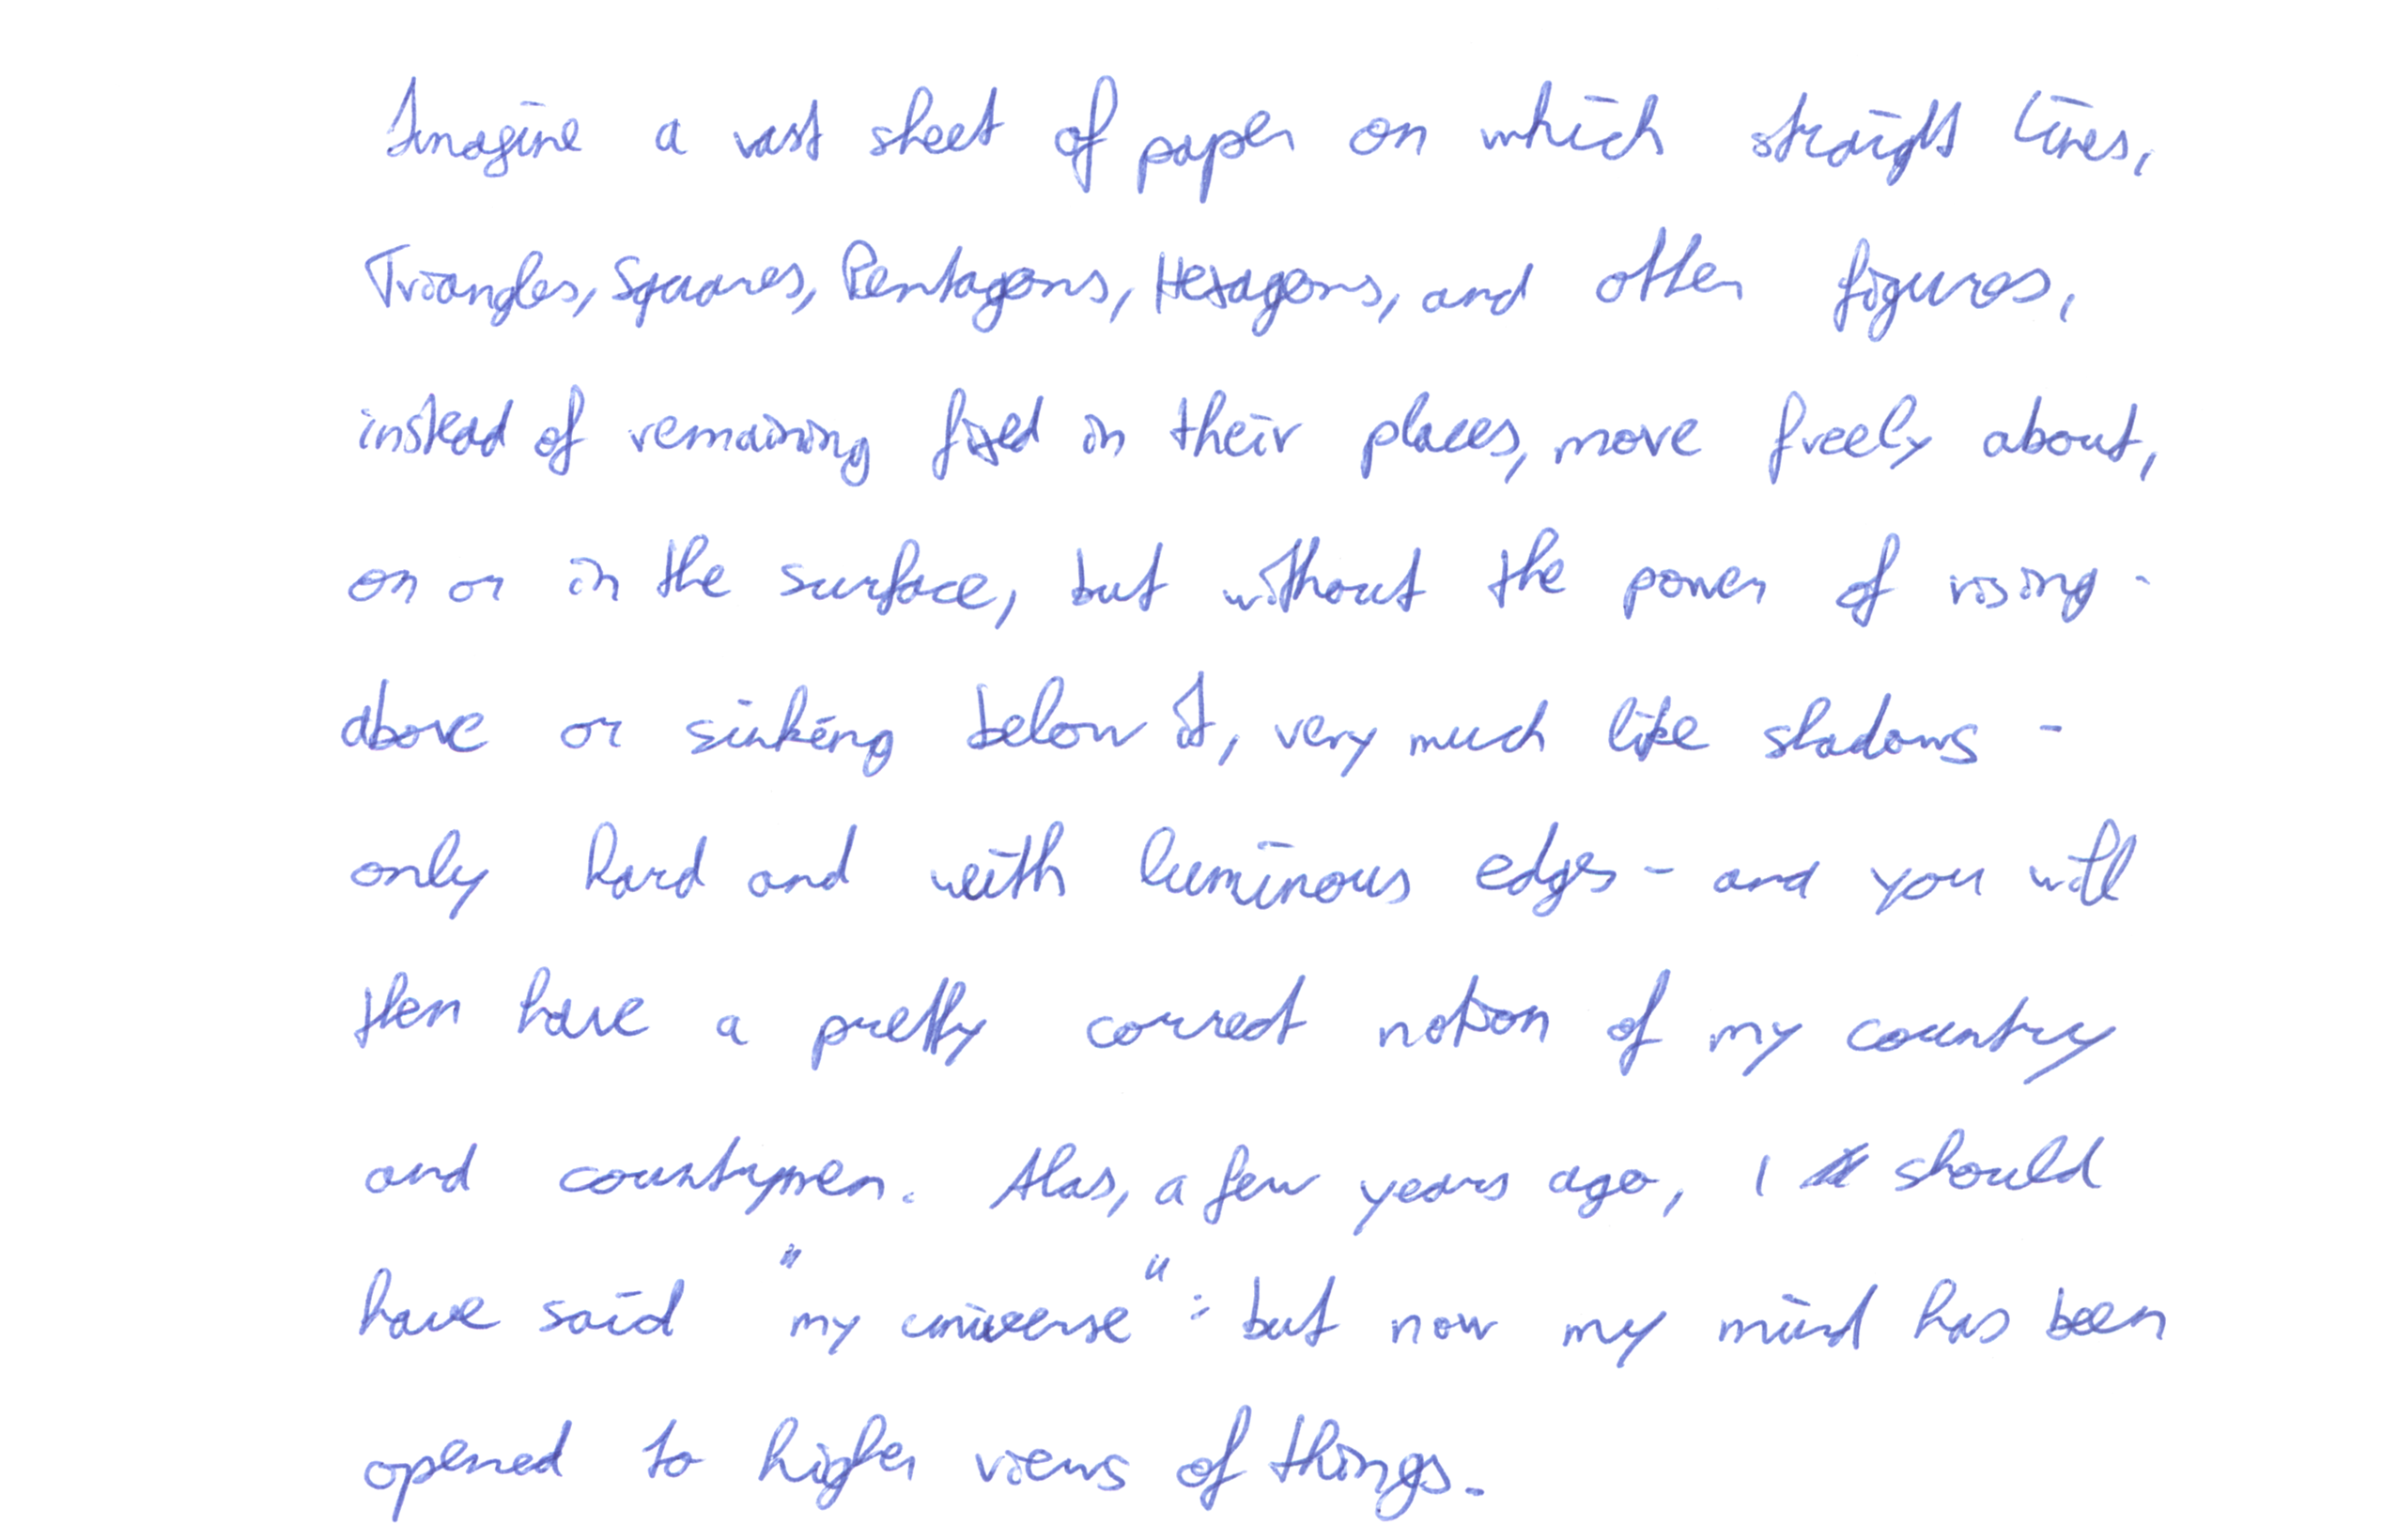 Imagine a vast sheet of paper on which straight lines,
Triangles, Squares, Pentagons, Hexagons, and other figures,
instead of remaining fixed in their places, move freely about,
on or in the surface, but without the power of rising
above or sinking below it, very much like shadows -
only hard and with luminous edges - and you will
then have a pretty correct notion of my country
and countrymen. Alas, a few years ago, I should
have said "my universe": but now my mind has been
opened to higher views of things.